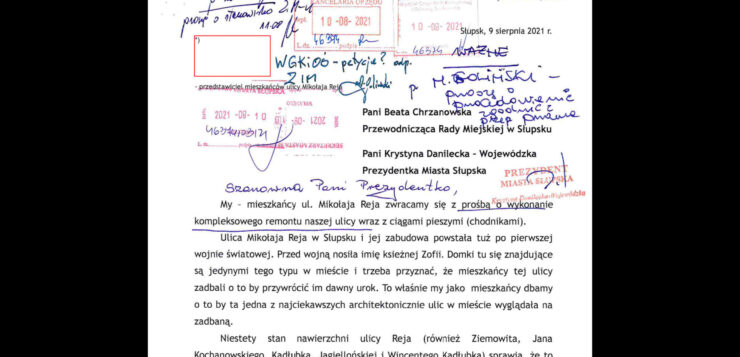 proszę o stanowisko ZIM
11.08
KANCELARIA URZĘDU
10 -08- 2021
L.dz. 46374 podpis
10 -08- 2021
46374
Słupsk, 9 sierpnia 2021 r.
WAŻNE
*)
WGKiOŚ - petycja? odp.
ZIM
p. M. Goliński -
proszę o
- przedstawiciel mieszkańców ulicy Mikołaja Reja
2021 -08- 10
46374/08/21
SEKRETARZ MIASTA SŁUPSKA
Pani Beata Chrzanowska
zgodnie z
Przewodnicząca Rady Miejskiej w Słupsku
Pani Krystyna Danilecka - Wojewódzka
Prezydentka Miasta Słupska
PREZYDENT
MIASTA SŁUPSKA
Krystyna Danilecka-Wojewódzka
Szanowna Pani Prezydentko,
My - mieszkańcy ul. Mikołaja Reja zwracamy się z prośbą o wykonanie
kompleksowego remontu naszej ulicy wraz z ciągami pieszymi (chodnikami).
Ulica Mikołaja Reja w Słupsku i jej zabudowa powstała tuż po pierwszej
wojnie światowej. Przed wojną nosiła imię księżnej Zofii. Domki tu się znajdujące
są jedynymi tego typu w mieście i trzeba przyznać, że mieszkańcy tej ulicy
zadbali o to by przywrócić im dawny urok. To właśnie my jako mieszkańcy dbamy
o to by ta jedna z najciekawszych architektonicznie ulic w mieście wyglądała na
zadbaną.
Niestety stan nawierzchni ulicy Reja (również Ziemowita, Jana
Kochanowskiego, Kadłubka, Jagiellońskiej i Wincentego Kadłubka) sprawia, że to